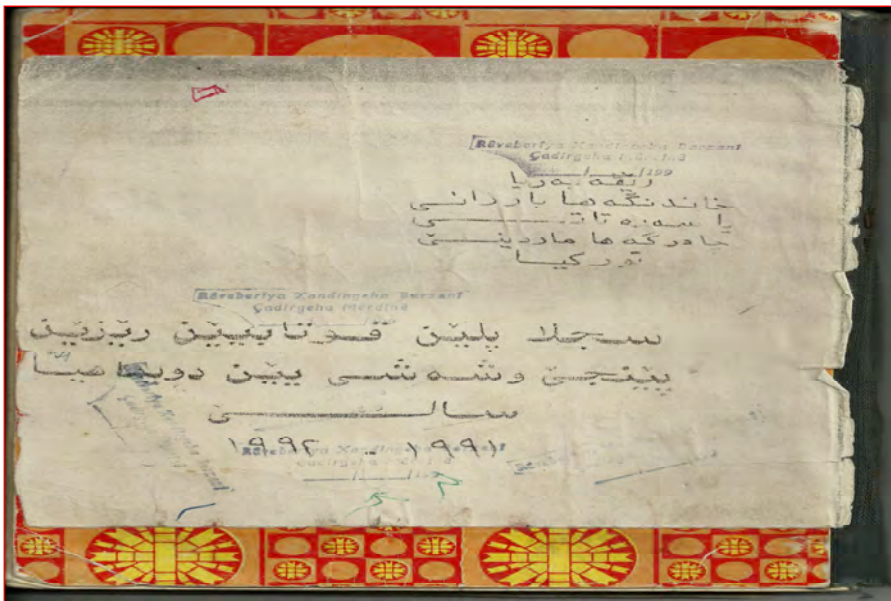 Rêvebirîya Xandingeha Barzanî
Çadirgeha Mêrdînê
/ /199
رێڤه به ریا
خاندنگه ها بارزانی
یا سه ره تاتی
چادرگه ها ماردینێ
تورکیا
Rêvebirîya Xandingeha Barzanî
Çadirgeha Mêrdînê
سجلا پلێن قوتابیێن رێزێن
پێنجێ وشه شی یێن دویماهیا
سالێ
١٩٩١ - ١٩٩٢
Rêvebirîya Xandingeha Barzanî
Çadirgeha Mêrdînê
/ /199